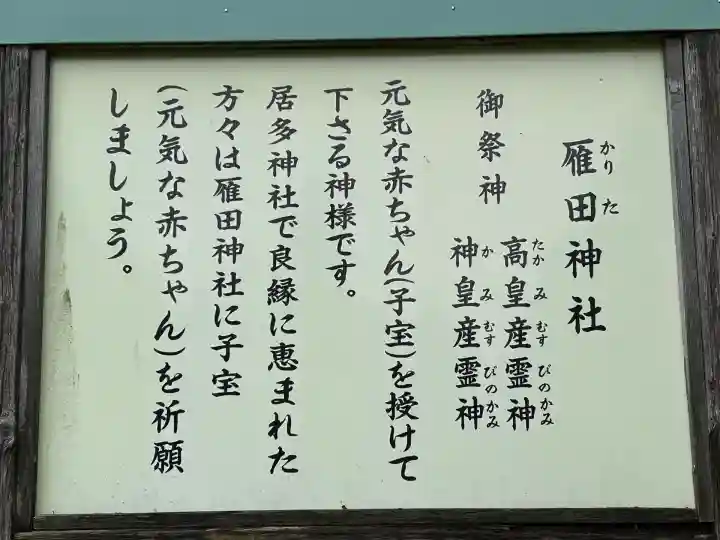 雁田神社
かりた
御祭神
高皇産霊神
たかみむすびのかみ
神皇産霊神
かみむすびのかみ
元気な赤ちゃん(子宝)を授けて
下さる神様です。
居多神社で良縁に恵まれた
方々は雁田神社に子宝
(元気な赤ちゃん)を祈願
しましょう。